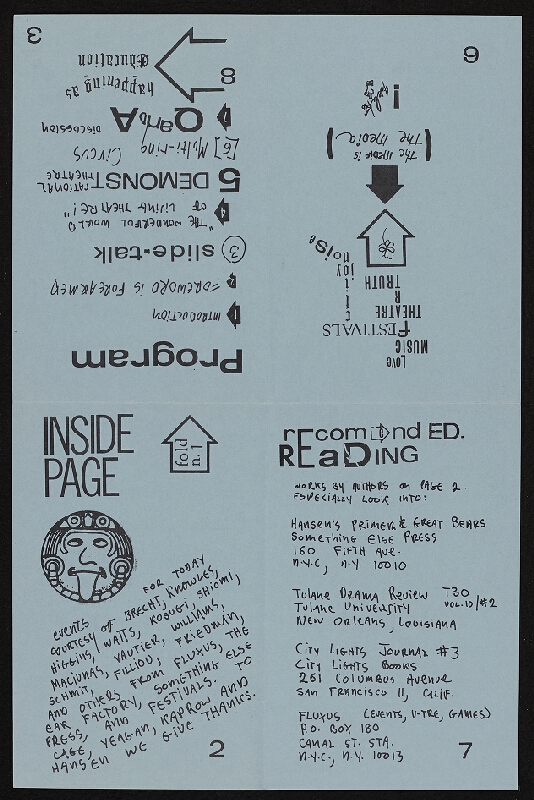 Program
1 INTRODUCTION
2 FOREWORD IS FOREARMED
3 slide-talk
4 "THE WONDERFUL WORLD
OF LIVING THEATRE!"
5 DEMONSTRATIONAL THEATRE
[6] Multi-ring CIRCUS
7 QandA DISCUSSION
8 happening as
education
3
LOVE
MUSIC
FESTIVALS
THEATRE
R
TRUTH
joy
noise
(The Media is
The Media)
!
6
INSIDE
PAGE
fold
n.1
EVENTS FOR TODAY
COURTESY OF BRECHT, KNOWLES,
HIGGINS, WATTS, KOSUGI, SHIOMI,
MACIUNAS, VAUTIER, WILLIAMS,
SCHMIT, FILLIOU, FRIEDMAN,
AND OTHERS FROM FLUXUS, THE
EAR FACTORY, SOMETHING ELSE
PRESS, AND FESTIVALS. TO
CAGE, YEAGAN, KAPROW AND
HANSEN WE GIVE THANKS.
2
rEcomméndED.
REaDING
WORKS BY AUTHORS ON PAGE 2
ESPECIALLY LOOK INTO:
Hansen's Primer & Great Bears
Something Else Press
160 Fifth Ave.
N.Y.C., N.Y 10010
Tulane Drama Review T30
Tulane University vol. 10/#2
New Orleans, Louisiana
City Lights Journal #3
City Lights Books
261 Columbus Avenue
San Francisco 11, Calif.
FLUXUS (EVENTS, V-TRE, GAMES)
P.O. BOX 180
CANAL ST. STA.
N.Y.C., N.Y. 10013
7